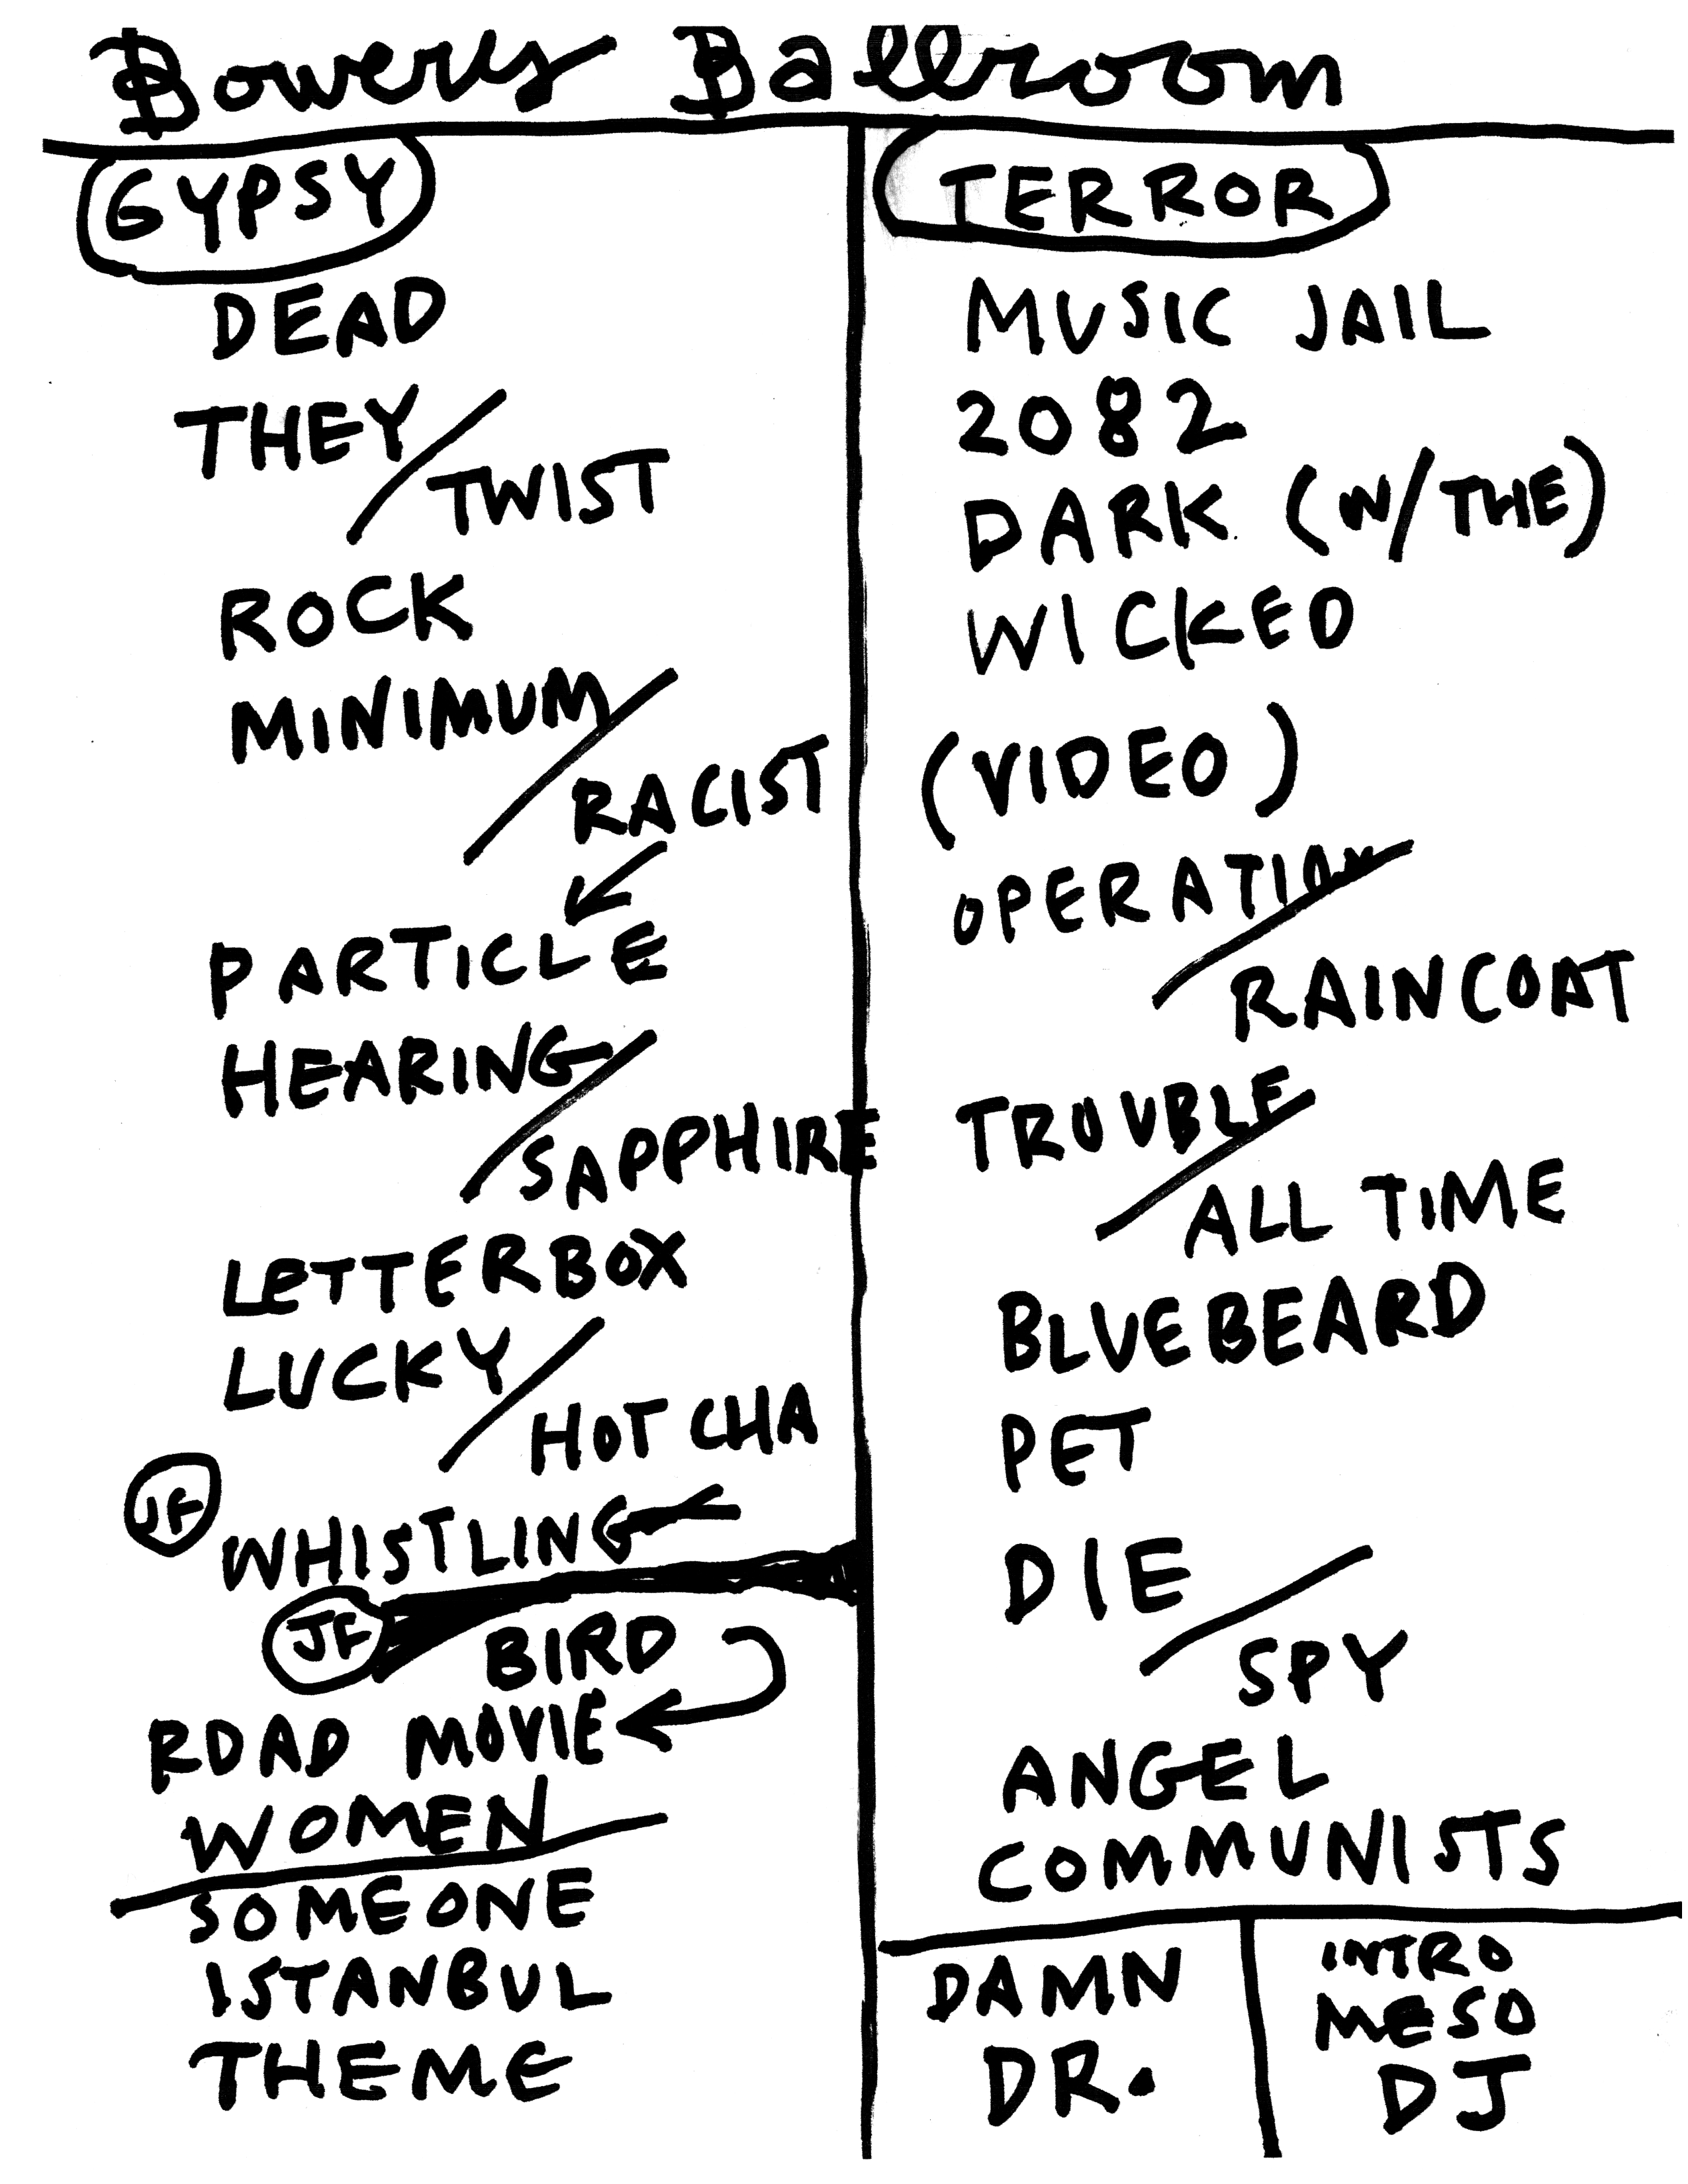 Bowery Ballroom
GYPSY
DEAD
THEY/
TWIST
ROCK
MINIMUM/
RACIST
PARTICLE
HEARING/
SAPPHIRE
LETTERBOX
LUCKY/
HOT CHA
JF
WHISTLING
JF BIRD
ROAD MOVIE
WOMEN
SOMEONE
ISTANBUL
THEME
TERROR
MUSIC JAIL
2082
DARK (W/THE)
WICKED
(VIDEO)
OPERATION/
RAINCOAT
TROUBLE/
ALL TIME
BLUEBEARD
PET
DIE/
SPY
ANGEL
COMMUNISTS
DAMN
DR.
INTRO
MESO
DJ